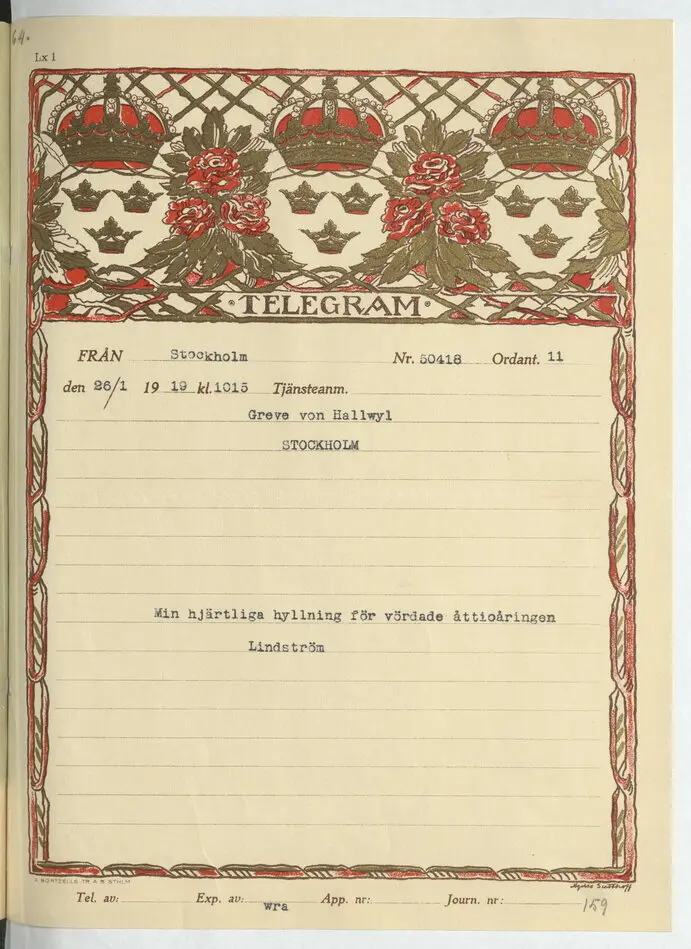 64.
Lx 1
TELEGRAM
FRÅN Stockholm Nr. 50418 Ordant. 11
den 26/1 19 19 kl. 1015 Tjänsteanm.
Greve von Hallwyl
STOCKHOLM
Min hjärtliga hyllning för vördade åttioåringen
Lindström
A. BÖRTZELLS TR. A.B. STHLM
Tel. av: Exp. av: wra App. nr: Journ. nr: 159